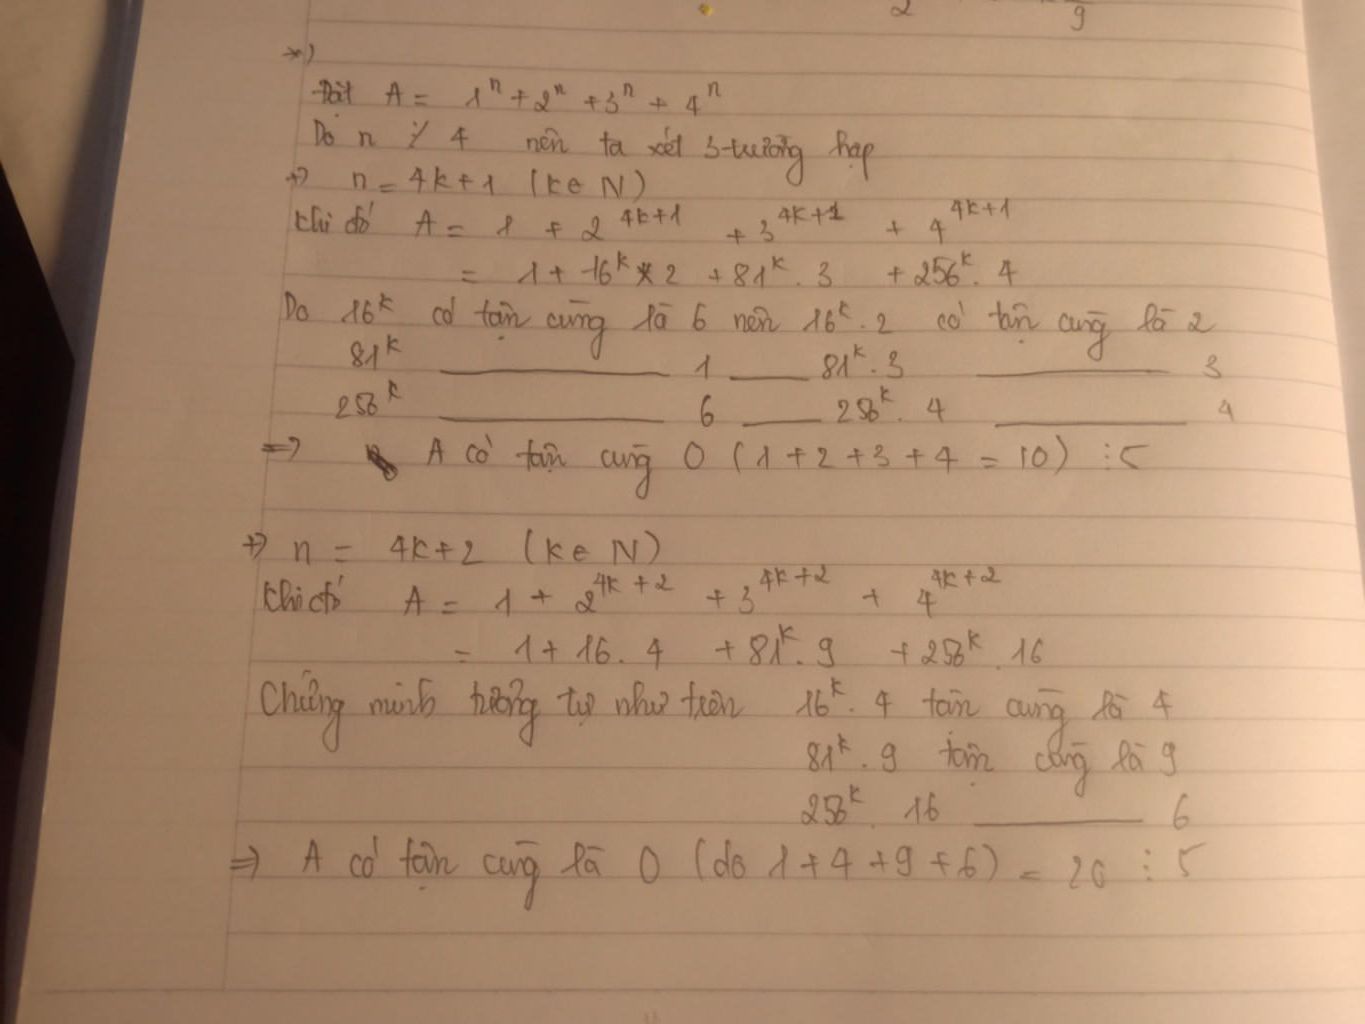 2 9
*)
Đặt A = 1^n + 2^n + 3^n + 4^n
Do n ⋮̸ 4 nên ta xét 3 trường hợp
+) n = 4k+1 (k ∈ N)
Khi đó A = 1 + 2^{4k+1} + 3^{4k+1} + 4^{4k+1}
= 1 + 16^k * 2 + 81^k . 3 + 256^k . 4
Do 16^k có tận cùng là 6 nên 16^k . 2 có tận cùng là 2
81^k ______ 1 ___ 81^k . 3 ______ 3
256^k ______ 6 ___ 256^k . 4 ______ 4
=> A có tận cùng 0 (1 + 2 + 3 + 4 = 10) ⋮ 5
+) n = 4k+2 (k ∈ N)
Khi đó A = 1 + 2^{4k+2} + 3^{4k+2} + 4^{4k+2}
= 1 + 16 . 4 + 81^k . 9 + 256^k . 16
Chứng minh tương tự như trên 16^k . 4 tận cùng là 4
81^k . 9 tận cùng là 9
256^k . 16 ______ 6
=> A có tận cùng là 0 (do 1 + 4 + 9 + 6) = 20 ⋮ 5